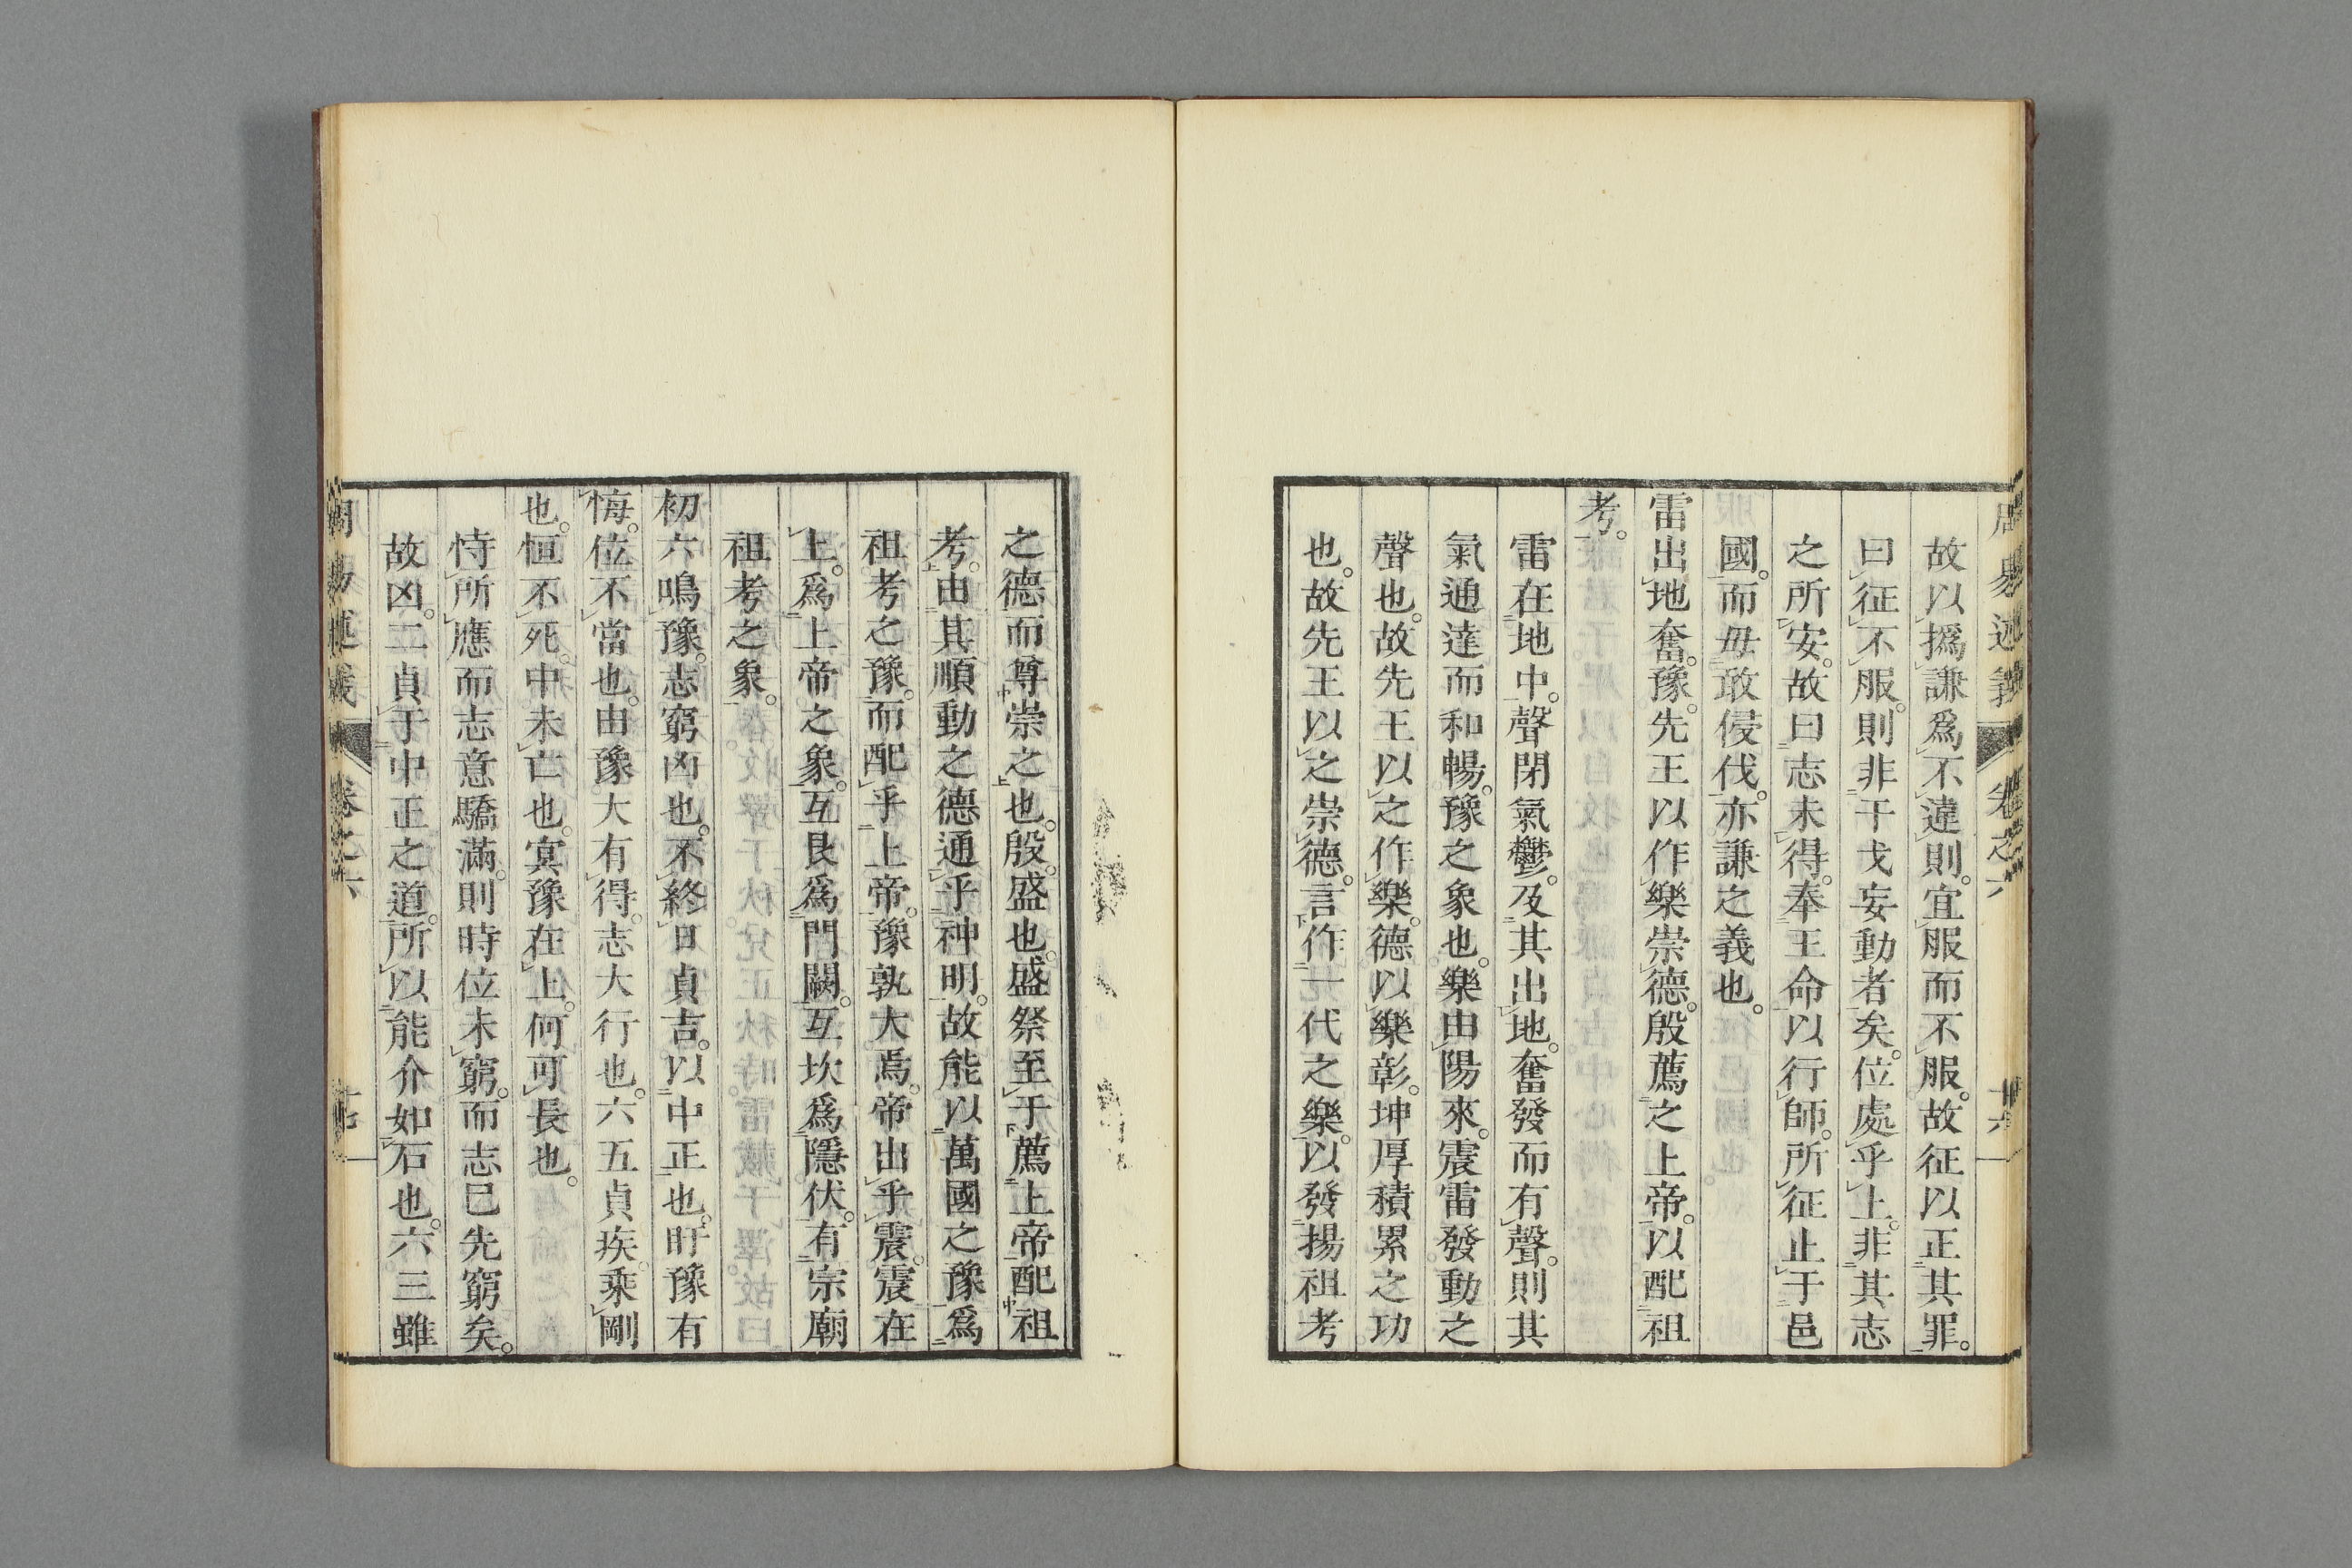 周易述義 卷之六 廿六
故以撝謙爲不違則。宜服而不服。故征以正其罪。
曰征不服。則非干戈妄動者矣。位處乎上。非其志
之所安。故曰志未得。奉王命以行師。所征止于邑
國。而毋敢侵伐。亦謙之義也。
雷出地奮。豫。先王以作樂崇德。殷薦之上帝。以配祖
考。
雷在地中。聲閉氣鬱。及其出地。奮發而有聲。則其
氣通達而和暢。豫之象也。樂由陽來。震雷發動之
聲也。故先王以之作樂。德以樂彰。坤厚積累之功
也。故先王以之崇德。言作一代之樂。以發揚祖考
之德而尊崇之也。殷。盛也。盛祭至于薦上帝配祖
考。由其順動之德通乎神明。故能以萬國之豫爲
祖考之豫。而配乎上帝。豫孰大焉。帝出乎震。震在
上。爲上帝之象。互艮爲門闕。互坎爲隱伏。有宗廟
祖考之象。
初六鳴豫。志窮凶也。不終日貞吉。以中正也。盱豫有
悔。位不當也。由豫大有得。志大行也。六五貞疾。乘剛
也。恒不死。中未亡也。冥豫在上。何可長也。
恃所應而志意驕滿。則時位未窮。而志已先窮矣。
故凶。二貞于中正之道。所以能介如石也。六三雖
周易述義 卷之六